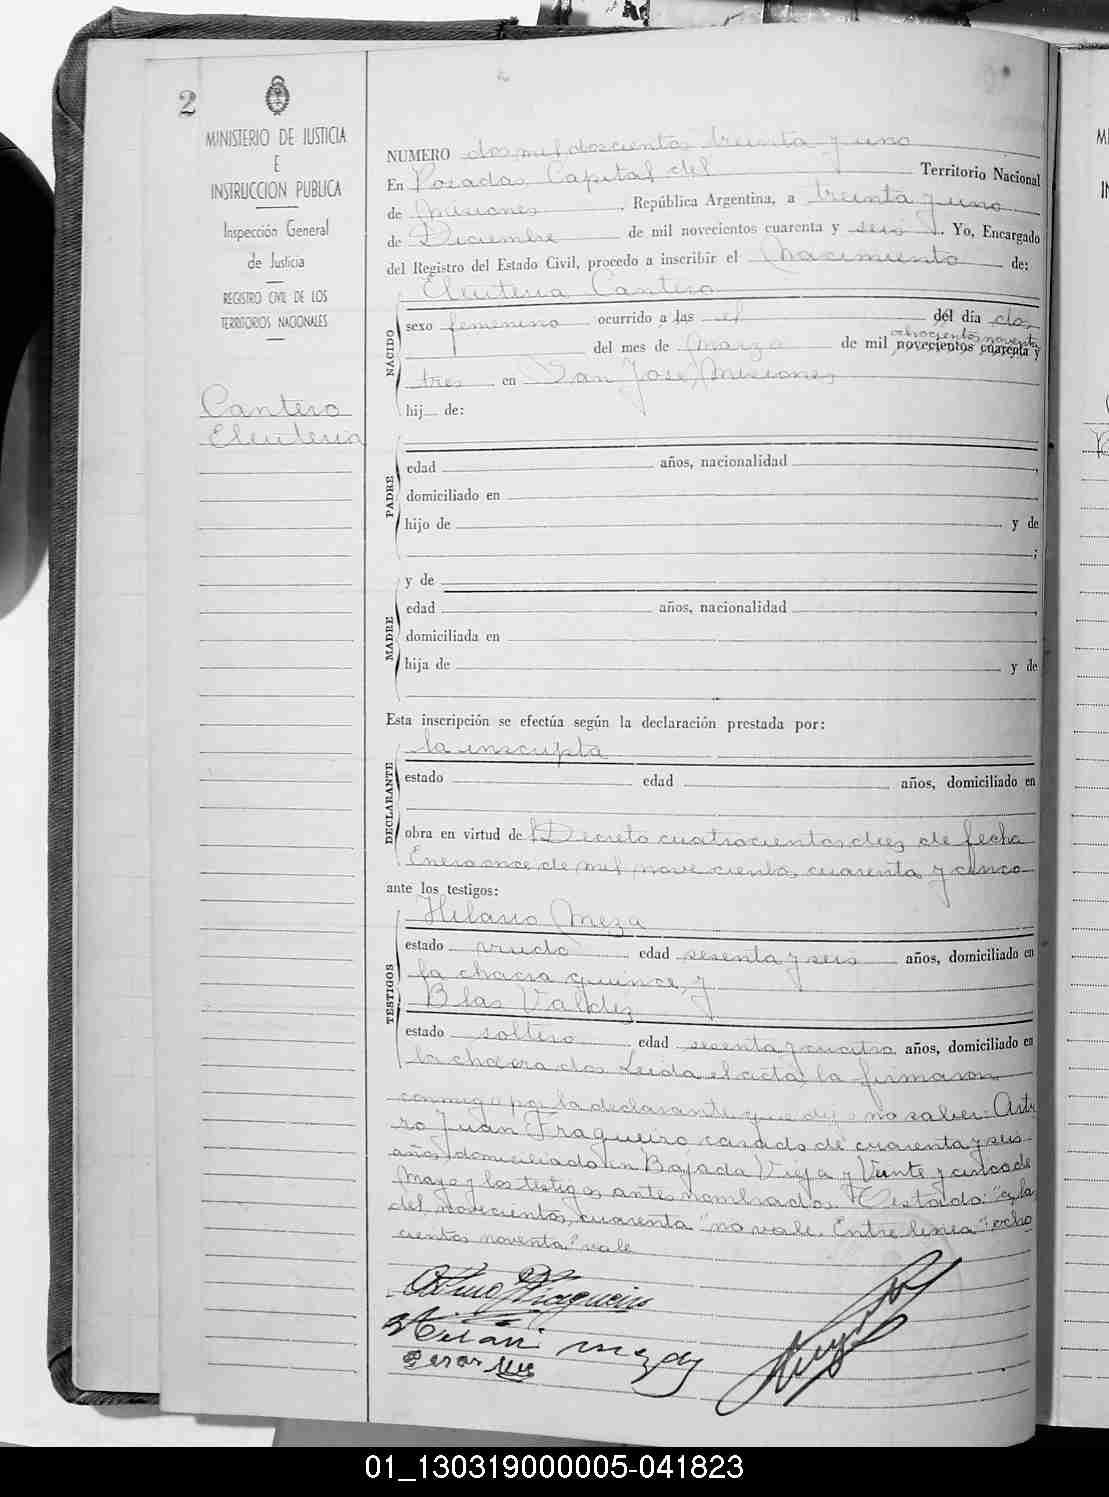 2
MINISTERIO DE JUSTICIA
E
INSTRUCCION PUBLICA
Inspección General
de Justicia
REGISTRO CIVIL DE LOS
TERRITORIOS NACIONALES
Cantero
Eleuteria
NUMERO dos mil doscientos treinta y uno
En Posadas Capital del Territorio Nacional
de Misiones, República Argentina, a treinta y uno
de Diciembre de mil novecientos cuarenta y seis. Yo, Encargado
del Registro del Estado Civil, procedo a inscribir el Nacimiento de:
Eleuteria Cantero
NACIDO
sexo femenino ocurrido a las el del día dos
ochocientos noventa
del mes de Marzo de mil novecientos cuarenta y
tres en San José, Misiones
hij de:
PADRE
edad años, nacionalidad
domiciliado en
hijo de y de
;
y de
MADRE
edad años, nacionalidad
domiciliada en
hija de y de
Esta inscripción se efectúa según la declaración prestada por:
la inscripta
DECLARANTE
estado edad años, domiciliado en
obra en virtud de Decreto cuatrocientos diez de fecha
Enero once de mil novecientos cuarenta y cinco
ante los testigos:
Hilario Meza
TESTIGOS
estado viudo edad sesenta y seis años, domiciliado en
la chacra quince, y
Blas Valdez
estado soltero edad sesenta y cuatro años, domiciliado en
la chacra dos Leida el acta, la firmaron
conmigo por la declarante que dijo no saber: Artu
ro Juan Fragueiro casado de cuarenta y seis
años, domiciliado en Bajada Vieja y Veinte y cinco de
Mayo y los testigos antes nombrados. Testado: "a las
del novecientos, cuarenta" no vale. Entre linea: "ocho
cientos noventa" vale
01_130319000005-041823